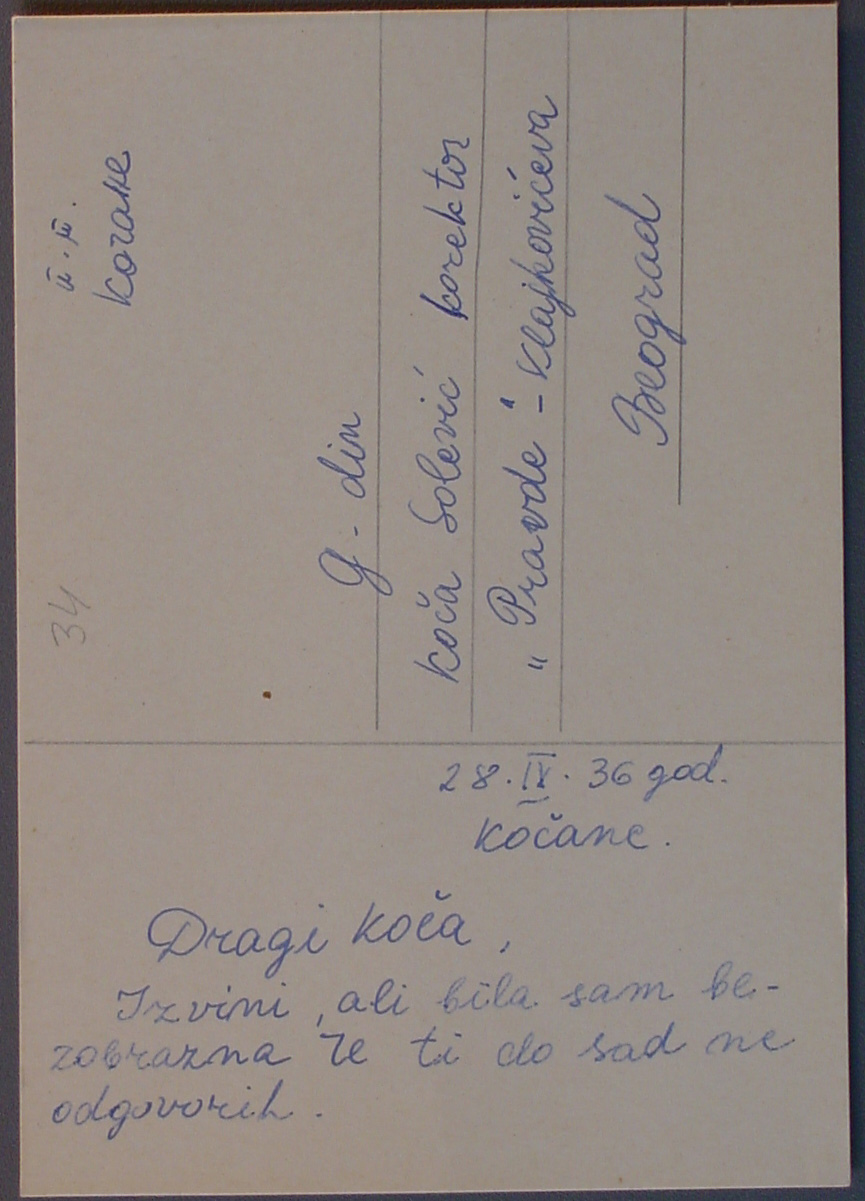 34
Kočane
G-din
Koča Solević korektor
„Pravde" - Vlajkovićeva
Beograd
28. IX. 36 god.
Kočane.
Dragi Koča,
Izvini, ali bila sam be-
zobrazna te ti do sad ne
odgovorih.